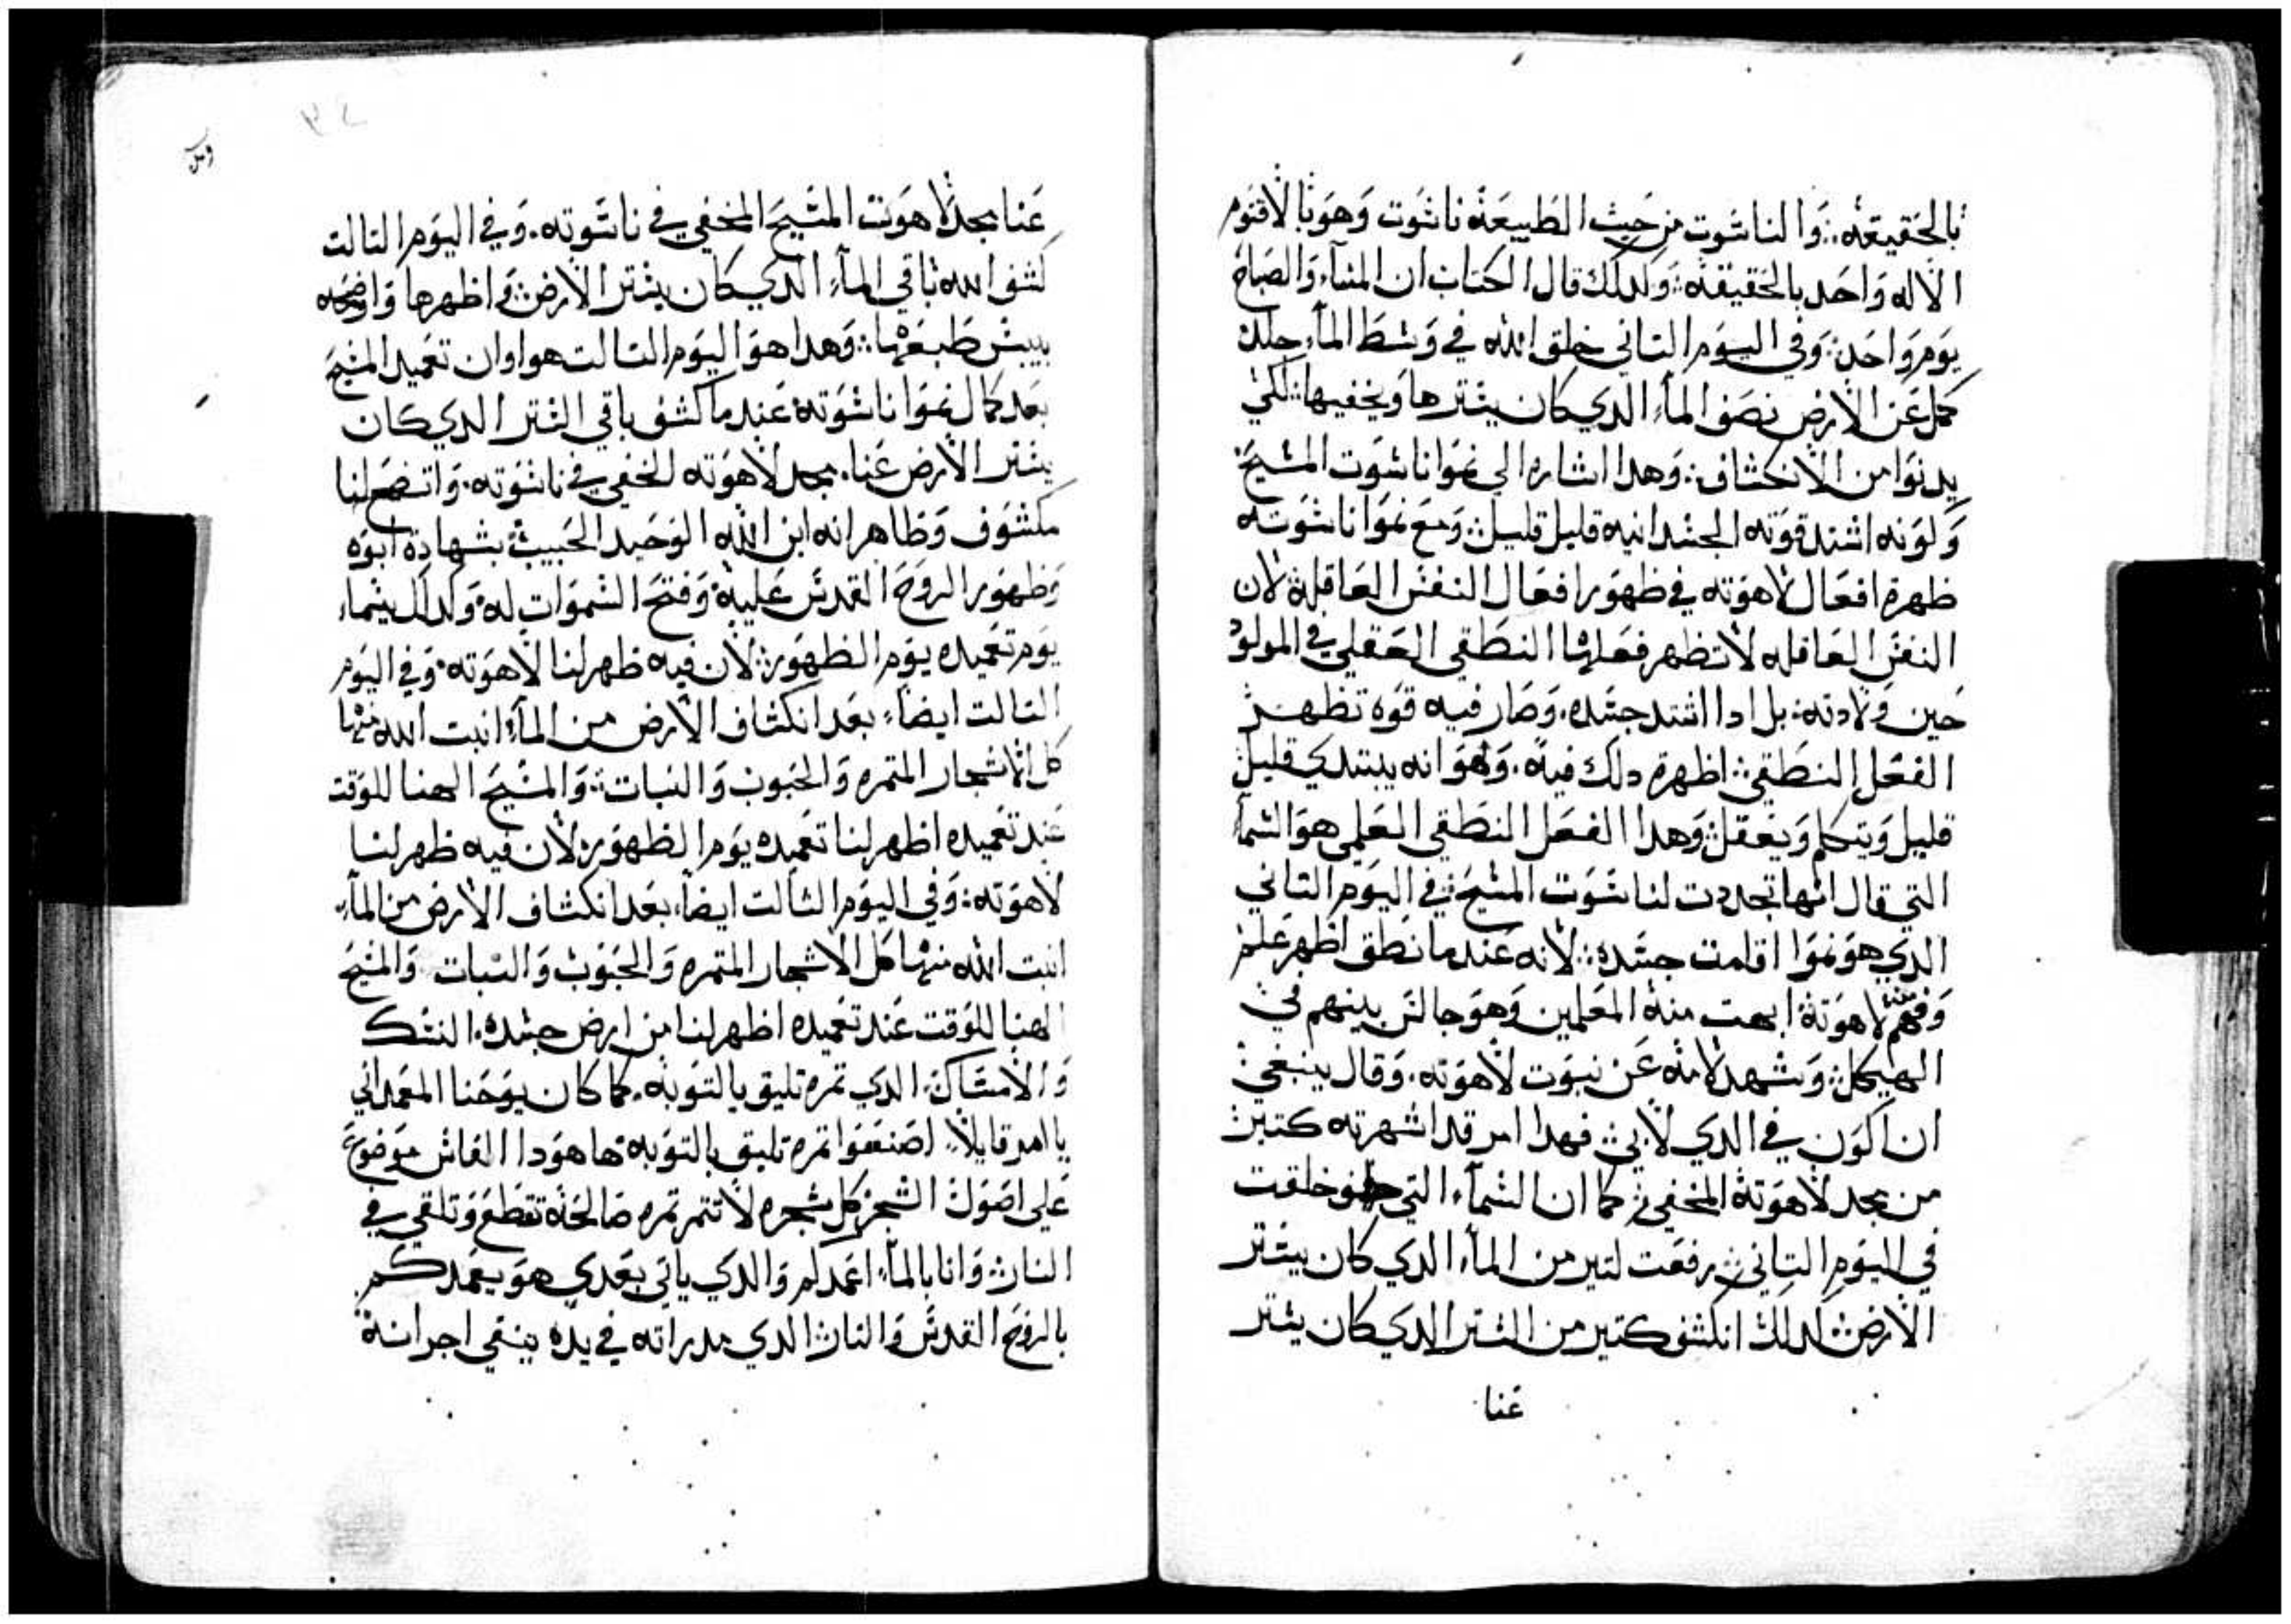 بالحقيقه. والناسوت من حيث الطبيعه ناسوت وهو بالاقنوم
الاله واحد بالحقيقه. ولدلك قال الكتاب ان المساء والصباح
يوم واحد. وفي اليوم التاني خلق الله في وسط الماء جلد
حمل عن الارض نصف الماء الدي كان يسترها ويخفيها. لكي
يدنوا من الانكشاف. وهدا اشاره الي نموا ناسوت المسيح
وكونه اشتد قوته الجسدانيه قليل قليل. ومع نموا ناسوته
ظهرة افعال لاهوته في ظهور افعال النفس العاقله. لان
النفس العاقله لا تظهر فعلها النطقي العقلي في المولود
حين ولادته. بل ادا اشتد جسده. وصار فيه قوة تظهر
الفعل النطقي. اظهرة دلك فيه. وهو انه يبتدي قليل
قليل ويتكلم ويعقل. وهدا الفعل النطقي العلمي هو السما
التي قال انها تجددت لناسوت المسيح في اليوم التاني
الدي هو نموا اقامت جسده. لانه عندما نطق اظهر علم
وفهم لاهوته ابهت منه المعلمين وهو جالس بينهم في
الهيكل. وشهد لامه عن نبوت لاهوته. وقال ينبغي
ان اكون في الدي لابي. فهدا امر قد اشهرته كتير
من مجد لاهوته المخفي. كما ان السماء التي خلقت
في اليوم التاني. رفعت كتير من الماء الدي كان يستر
الارض. كدلك انكشف كتير من الستر الدي كان يستر
عنا
عنا مجد لاهوت المسيح المخفي في ناسوته. وفي اليوم التالت
كشف الله باقي الماء الدي كان يستر الارض. واظهرها واوضحه
ييبس طبعها. وهدا هو اليوم التالت هو اوان تعميد المسيح
بعد كمال نموا ناسوته عندما كشف باقي الستر الدي كان
يستر الارض عنا. مجد لاهوته الخفي في ناسوته. واتضح لنا
مكشوف وظاهر انه ابن الله الوحيد الحبيب بشهادة ابوه
وظهور الروح القدس عليه وفتح السموات له. ولدلك يسماء
يوم تعميده يوم الظهور. لان فيه ظهر لنا لاهوته. وفي اليوم
التالت ايضاء بعد انكشاف الارض من الماء. انبت الله منها
كل الاشجار المتمره والحبوب والنبات. والمسيح الهنا للوقت
عند تعميده اظهر لنا تعميده يوم الظهور. لان فيه ظهر لنا
لاهوته. وفي اليوم التالت ايضاء بعد انكشاف الارض من الماء.
انبت الله منها كل الاشجار المتمره والحبوب والنبات والمسيح
الهنا للوقت عند تعميده اظهر لنا من ارض جسده. النسك
والامساك. الدي تمره تليق بالتوبه. كما كان يوحنا المعمداني
يامر قايلا. اصنعوا تمره تليق بالتوبه ها هودا الفاس موضوع
علي اصول الشجر كل شجره لا تتمر تمره صالحه تقطع وتلقي في
النار. وانا بالماء اعمدكم والدي ياتي بعدي هو يعمدكم
بالروح القدس والنار الدي مدراته في يده ينقي اجرانه